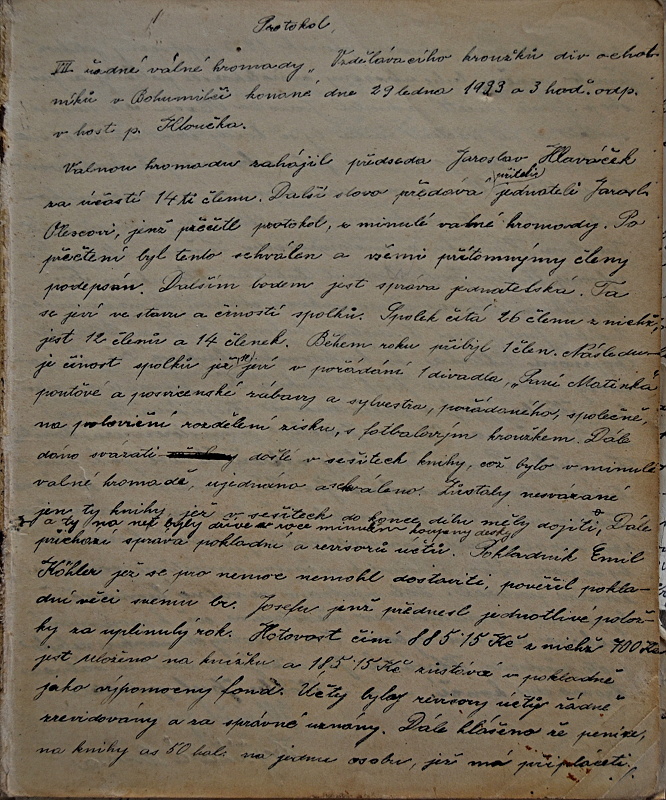 Protokol,
VII. řádné valné hromady „Vzdělávacího kroužků div ochot
níků v Bohumilči konané dne 29 ledna 1933 o 3 hod. odp.
v host p. Kloučka.
Valnou hromadu zahájil předseda Jaroslav Hlaváček
za účasti 14 ti členu. Další slovo předává přítelé jednateli Jarosl.
, jenž přečetl protokol, z minulé valné hromady. Po
přečtení byl tento schválen a všemi přítomnými členy
podepsán. Dalším bodem jest správa jednatelská. Ta
se jeví ve stavu a činosti spolků. Spolek čítá 26 členu z nichž,
jest 12 členů a 14 členek. Během roku přibyl 1 člen. Následu-
je činost spolků jež se jeví v pořádání 1 divadla, „Paní Matinka"
poutové a posvícenské zábavy a sylvestra, pořádaného, společně,
na poloviční rozdělení zisku, s fotbalovým kroužkem. Dále
dáno svázati došlé v sešitech knihy, což bylo v minulé
valné hromadě, ujednáno a schváleno. Zůstaly nesvázané
jen ty knihy jež v sešitech do konce dílu měly dojíti,
a ty na než byly dříve v roce minulém koupeny desky. Dále
přichází správa pokladní a revisorů účtů. Pokladník Emil
Köhler jež se pro nemoc nemohl dostaviti, pověřil pokla-
dní věcí svému br. Josefu jenž přednesl jednotlivé polož-
ky za uplinulý rok. Hotovost činí 885˙15 Kč z nichž 700 Kč
jest uloženo na knížku a 185˙15 Kč zůstává v pokladně
jako výpomocný fond. Účty byly revisory účtů řádně
zrevidovány a za správné uznány. Dále hlášeno že peníze,
na knihy as 50 hal. na jednu osobu, jež má připláceti.